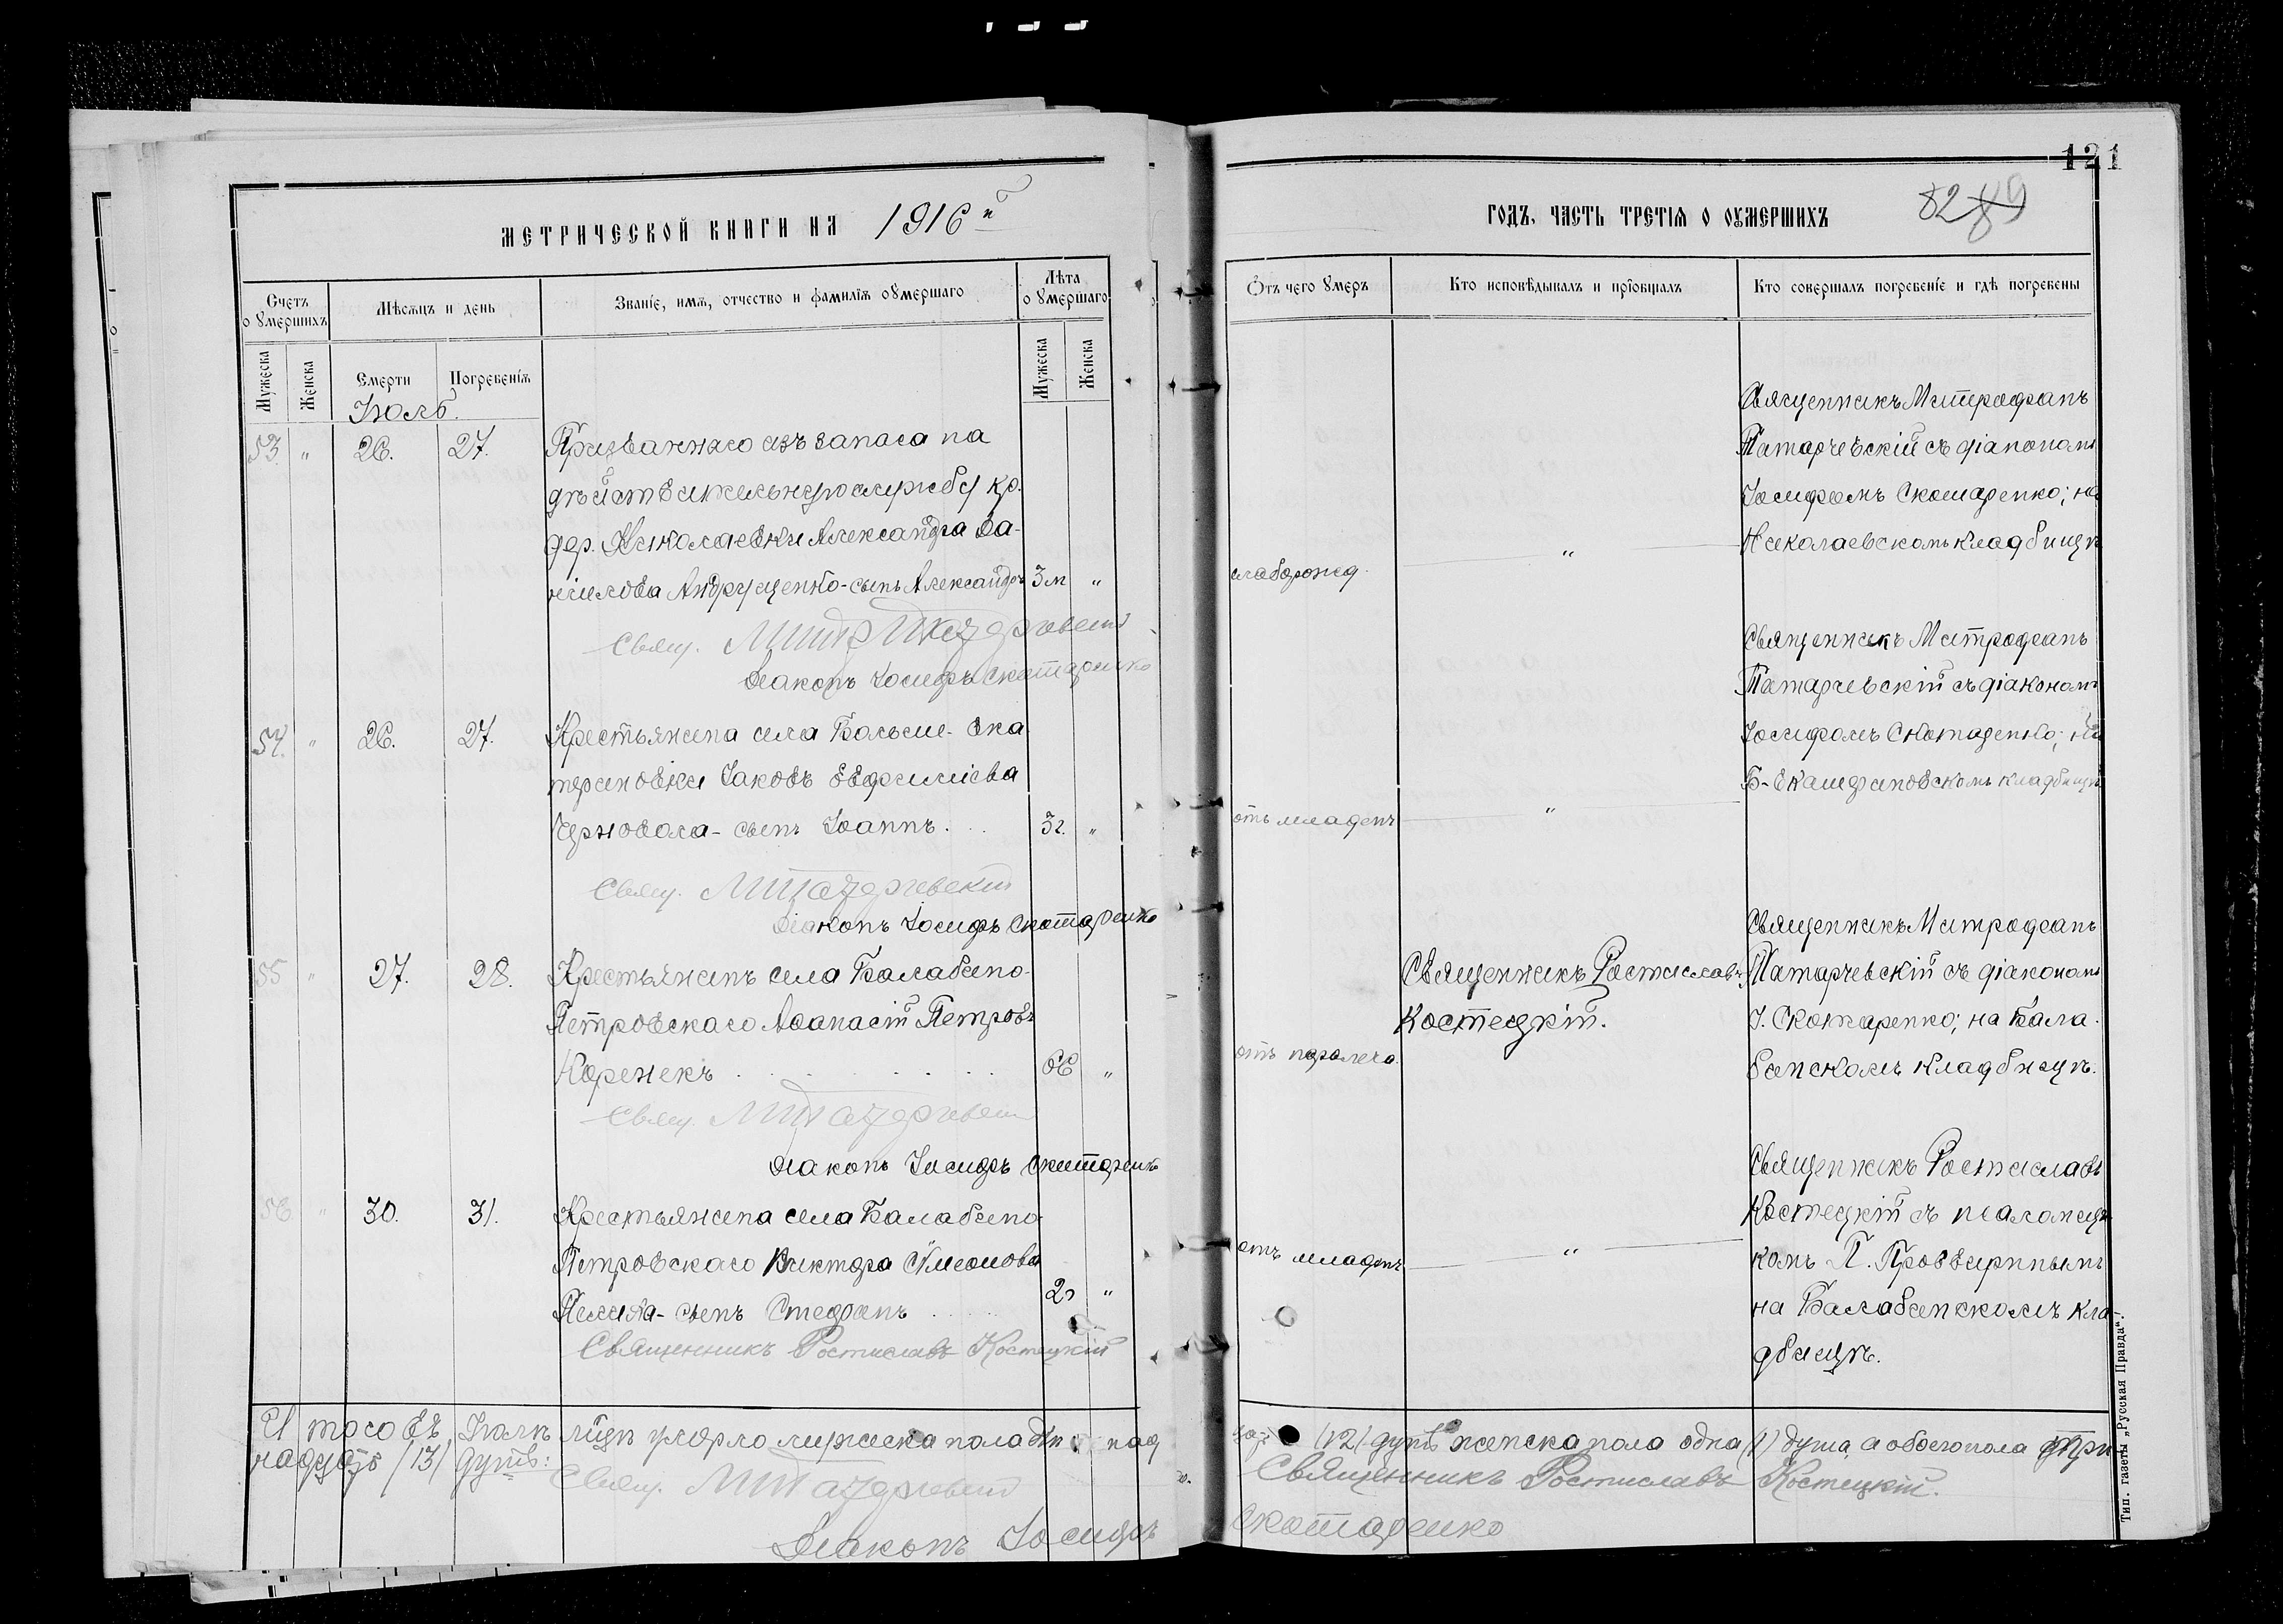 121
82 89
МЕТРИЧЕСКОЙ КНИГИ НА 1916й
ГОДЪ, ЧАСТЬ ТРЕТІЯ О ОУМЕРШИХЪ
Счетъ оумершихъ
Мѣсяцъ и день
Званіе, имя, отчество и фамилія оумершаго
Лѣта оумершаго
Мужеска
Женска
Смерти
Погребенія
Мужеска
Женска
Отъ чего умеръ
Кто исповѣдывалъ и пріобщалъ
Кто совершалъ погребеніе и гдѣ погребены
Іюль.
53. " 26. 27.
Призваннаго изъ запаса на
дѣйствительную службу кр.
дер. Николаевки Александра Да-
ніилова Андрущенко - сынъ Александръ 3м "
Свящ. Митр. Патаржевскій
Діаконъ Іосифъ Скотаренко
слаборожд.
"
Священникъ Митрофанъ
Патаржевскій съ діакономъ
Іосифомъ Скотаренко; на
Николаевскомъ кладбищѣ
54. " 26. 27.
Крестьянина села Больше-Ека
териновки Іаковъ Евфиміева
Черновола - сынъ Іоаннъ. 3г. "
Свящ. М Патаржевскій
Діаконъ Іосифъ Скотаренко
отъ младенч
"
Священникъ Митрофанъ
Патаржевскій съ діакономъ
Іосифомъ Скотаренко; на
Б-Екатериновскомъ кладбищѣ
55 " 27. 28.
Крестьянинъ села Балабино-
Петровскаго Аѳанасій Петровъ
Коренекъ 66 "
Свящ. М Патаржевскій
Діаконъ Іосифъ Скотаренко
отъ паралича.
Священникъ Ростиславъ
Костецкій.
Священникъ Митрофанъ
Патаржевскій съ діакономъ
І. Скотаренко; на Бала-
бинскомъ кладбищѣ.
56 " 30. 31.
Крестьянина села Балабино
Петровскаго Виктора Симеонова
сынъ Стефанъ 2г "
Священникъ Ростиславъ Костецкій
отъ младенч
"
Священникъ Ростиславъ
Костецкій съ псаломщи-
комъ П.
на Балабинскомъ кла-
дбищѣ.
Итого въ Іюлѣ мѣсяцѣ умерло мужеска пола двѣнад
цать (12) душъ женска пола одна (1) душа, а обоего пола три-
надцать /13/ душъ:
Свящ. М Патаржевскій
Священникъ Ростиславъ Костецкій.
Діаконъ Іосифъ Скотаренко
Тип. газеты „Русская Правда“.